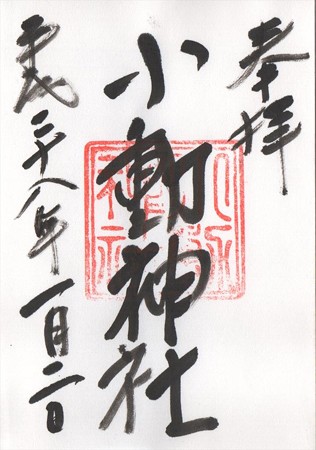 奉拝
小動神社
平成二十八年一月二日